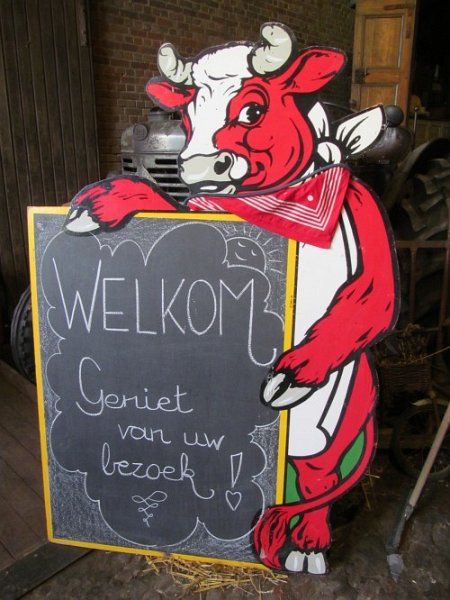 WELKOM
Geniet
van uw
bezoek!